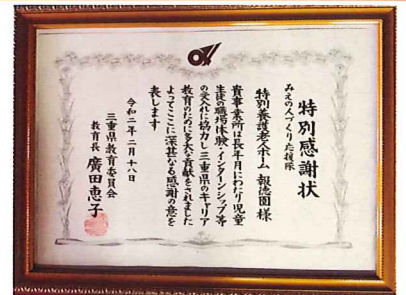 特別感謝状
みえの人づくり応援隊
特別養護老人ホーム 報徳園様
貴事業所は長年月にわたり児童
生徒の職場体験・インターンシップ等
の受入れに協力し三重県のキャリア
教育のために多大な貢献をされました
よってここに深甚なる感謝の意を
表します
令和二年二月十八日
三重県教育委員会
教育長 廣田恵子